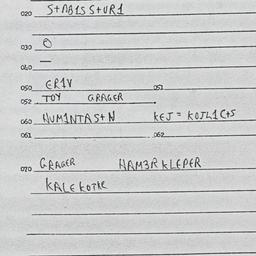 020 S+ABISS+UR1
030 O
040 —
050 ERIV 051
052 TOY GRAGER
060 NUMINTAS+N KEJ = KOJL1C+S
061 062
070 GRAGER HAM3R KLEPER
KALE KOTRE